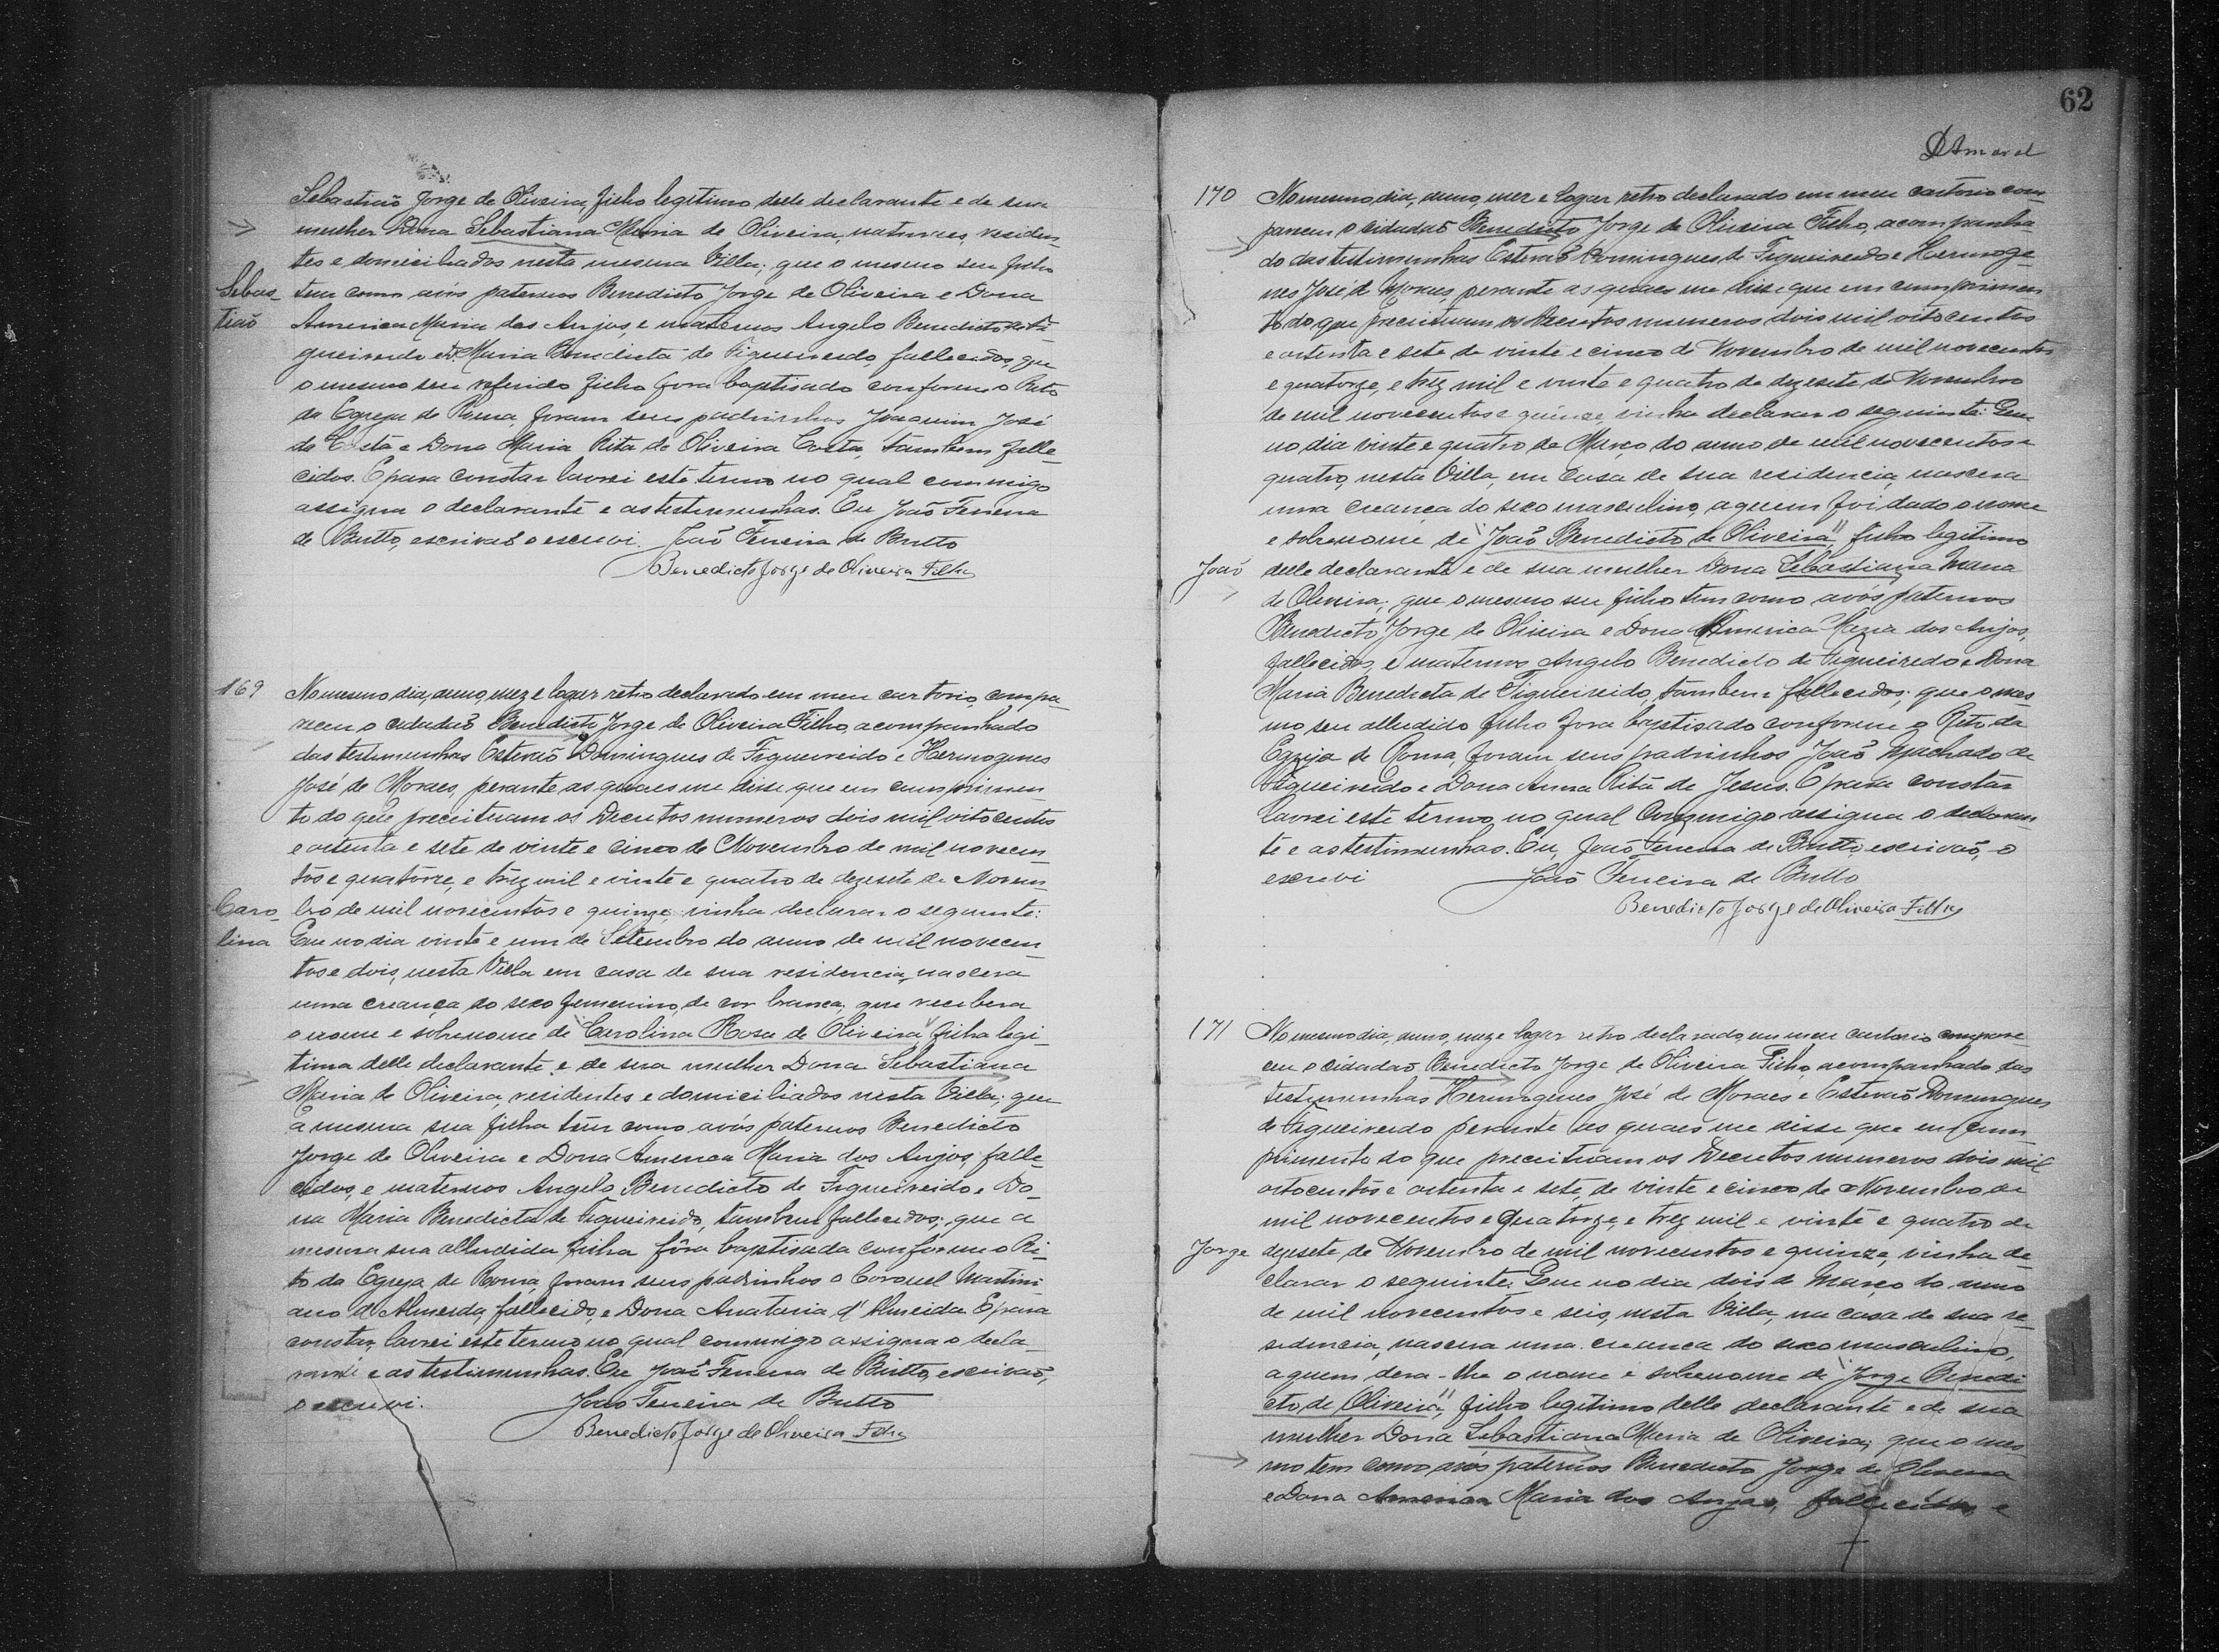 Sebastião Jorge de Oliveira, filho legitimo delle declarante e de sua
mulher Dona Sebastiana Maria de Oliveira, naturaes, residen-
tes e domiciliados nesta mesma Villa; que o mesmo seu filho
Sebas-
tião
tem como avós paternos Benedicto Jorge de Oliveira e Dona
America Maria dos Anjos, e maternos Angelo Benedicto de Fi-
gueireido e D. Maria Benedicta de Figueireido, fallecidos, que
o mesmo seu referido filho fora baptisado conforme o Rito
da Egreja de Roma, foram seus padrinhos Joaquim José
da Costa e Dona Maria Rita de Oliveira Costa, tambem falle-
cidos. E para constar lavrei este termo no qual commigo
assigna o declarante e as testimunhas. Eu João Ferreira
de Britto, escrivão o escrevi. João Ferreira de Britto
Benedicto Jorge de Oliveira Filho
169
No mesmo dia, anno, mez e logar retro declarado em meu cartorio, compa-
receu o cidadão Benedicto Jorge de Oliveira Filho, acompanhado
das testimunhas Estevão Domingues de Figueireido e Hermogenes
José de Moraes, perante as quaes me disse que em cumprimen-
to do que preceituam os Decretos numeros dois mil oitocentos
e oitenta e sete de vinte e cinco de Novembro de mil novecen-
tos e quatorze, e trez mil e vinte e quatro de dezesete de Novem-
Caro-
lina
bro de mil novecentos e quinze, vinha declarar o seguinte:
Que no dia vinte e um de Setembro do anno de mil novecen-
tos e dois, nesta Villa em casa de sua residencia, nascera
uma creança do sexo femenino, de cor branca, que recebera
o nome e sobrenome de "Carolina Rosa de Oliveira", filha legi-
tima delle declarante e de sua mulher Dona Sebastiana
Maria de Oliveira, residentes e domiciliados nesta Villa; que
a mesma sua filha tem como avós paternos Benedicto
Jorge de Oliveira e Dona America Maria dos Anjos, falle-
cidos, e maternos Angelo Benedicto de Figueireido e Do-
na Maria Benedicta de Figueireido, tambem fallecidos; que a
mesma sua alludida filha fôra baptisada conforme o Ri-
to da Egreja de Roma, foram seus padrinhos o Coronel Martini-
ano d'Almeida, fallecido, e Dona Anatania d'Almeida. E para
constar, lavrei este termo no qual commigo assigna o decla-
rante e as testimunhas. Eu João Ferreira de Britto, escrivão,
o escrevi. João Ferreira de Britto
Benedicto Jorge de Oliveira Filho
62
DAmaral
170
No mesmo dia, anno, mez e logar retro declarado em meu cartorio com-
pareceu o cidadão Benedicto Jorge de Oliveira Filho, acompanha-
do das testimunhas Estevão Domingues de Figueireido e Hermoge-
nes José de Moraes, perante as quaes me disse que em cumprimen-
to do que preceituam os Decretos numeros dois mil oitocentos
e oitenta e sete de vinte e cinco de Novembro de mil novecentos
e quatorze, e trez mil e vinte e quatro de dezesete de Novembro
de mil novecentos e quinze vinha declarar o seguinte: Que
no dia vinte e quatro de Março do anno de mil novecentos e
quatro, nesta Villa, em casa de sua residencia, nascera
uma creança do sexo masculino, a quem foi dado o nome
e sobrenome de "João Benedicto de Oliveira", filho legitimo
João
delle declarante e de sua mulher Dona Sebastiana Maria
de Oliveira; que o mesmo seu filho tem como avós paternos
Benedicto Jorge de Oliveira e Dona America Maria dos Anjos,
fallecidos, e maternos Angelo Benedicto de Figueiredo e Dona
Maria Benedicta de Figueireido, tambem fallecidos; que o mes-
mo seu alludido filho fora baptisado conforme o Rito da
Egreja de Roma, foram seus padrinhos João Machado de
Figueireido e Dona Anna Rita de Jesus. E para constar
lavrei este termo, no qual commigo assigna o declaran-
te e as testimunhas. Eu, João Ferreira de Britto, escrivão, o
escrevi João Ferreira de Britto
Benedicto Jorge de Oliveira Filho
171
No mesmo dia, anno, mez e logar retro declarado, em meu cartorio compare-
ceu o cidadão Benedicto Jorge de Oliveira Filho, acompanhado das
testimunhas Hermogenes José de Moraes e Estevão Domingues
de Figueireido perante as quaes me disse que em cum-
primento do que preceituam os Decretos numeros dois mil
oitocentos e oitenta e sete, de vinte e cinco de Novembro de
mil novecentos e quatorze, e trez mil e vinte e quatro de
Jorge
dezesete de Novembro de mil novecentos e quinze, vinha de-
clarar o seguinte: Que no dia dois de Março do anno
de mil novecentos e seis, nesta Villa, na casa de sua re-
sidencia, nascera uma creança do sexo masculino,
a quem dera-lhe o nome e sobrenome de "Jorge Benedi-
cto de Oliveira", filho legitimo delle declarante e de sua
mulher Dona Sebastiana Maria de Oliveira; que o mes-
mo tem como avós paternos Benedicto Jorge de Oliveira
e Dona America Maria dos Anjos, fallecidos, e